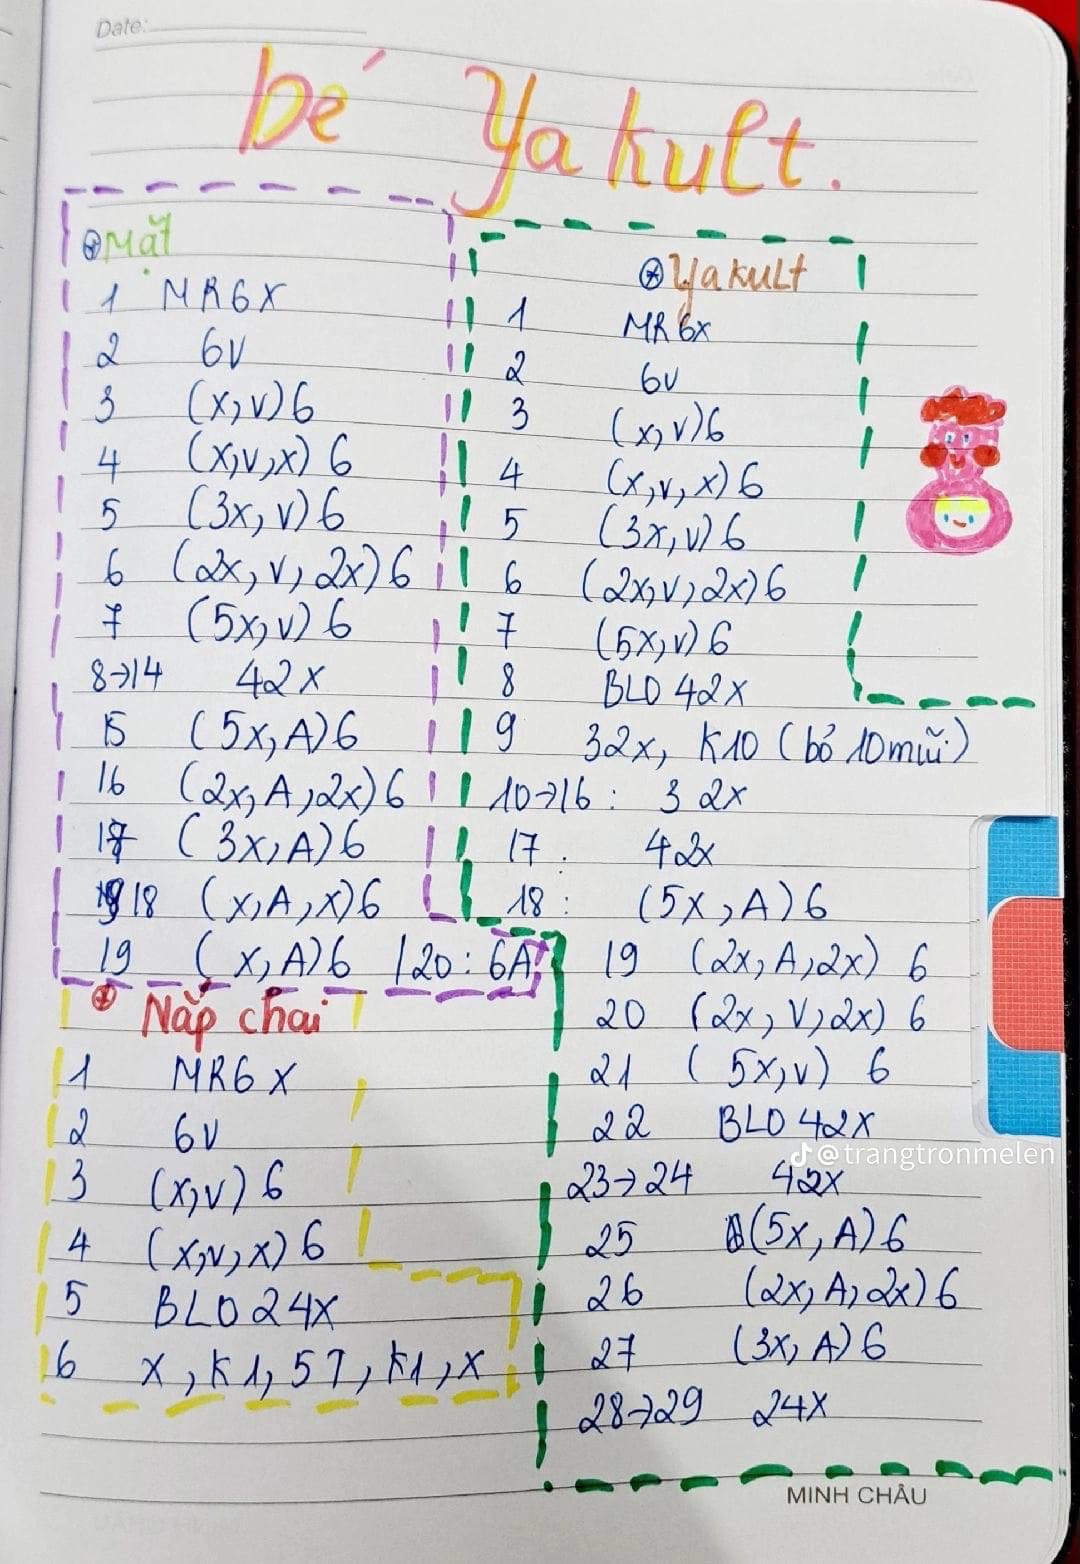 Date:
bé Yakult.
Mặt
1 MR6X
2 6V
3 (x,v)6
4 (x,v,x) 6
5 (3x, v) 6
6 (2x, v, 2x) 6
7 (5x, v) 6
8→14 42x
15 (5x, A) 6
16 (2x, A, 2x) 6
17 (3x, A) 6
18 (x, A, x) 6
19 (x, A) 6 / 20: 6A
Nắp chai
1 MR6X
2 6V
3 (x,v) 6
4 (x,v,x) 6
5 BLO 24X
6 x, K1, 5T, K1, x
Yakult
1 MR 6x
2 6V
3 (x, v)6
4 (x, v, x) 6
5 (3x, v) 6
6 (2x, v, 2x) 6
7 (5x, v) 6
8 BLO 42x
9 32x, K10 (bỏ 10 mũi)
10→16: 32x
17. 42x
18: (5x, A) 6
19 (2x, A, 2x) 6
20 (2x, V, 2x) 6
21 (5x, v) 6
22 BLO 42X
@trangtronmelen
23→24 42x
25 (5x, A) 6
26 (2x, A, 2x) 6
27 (3x, A) 6
28→29 24X
MINH CHÂU